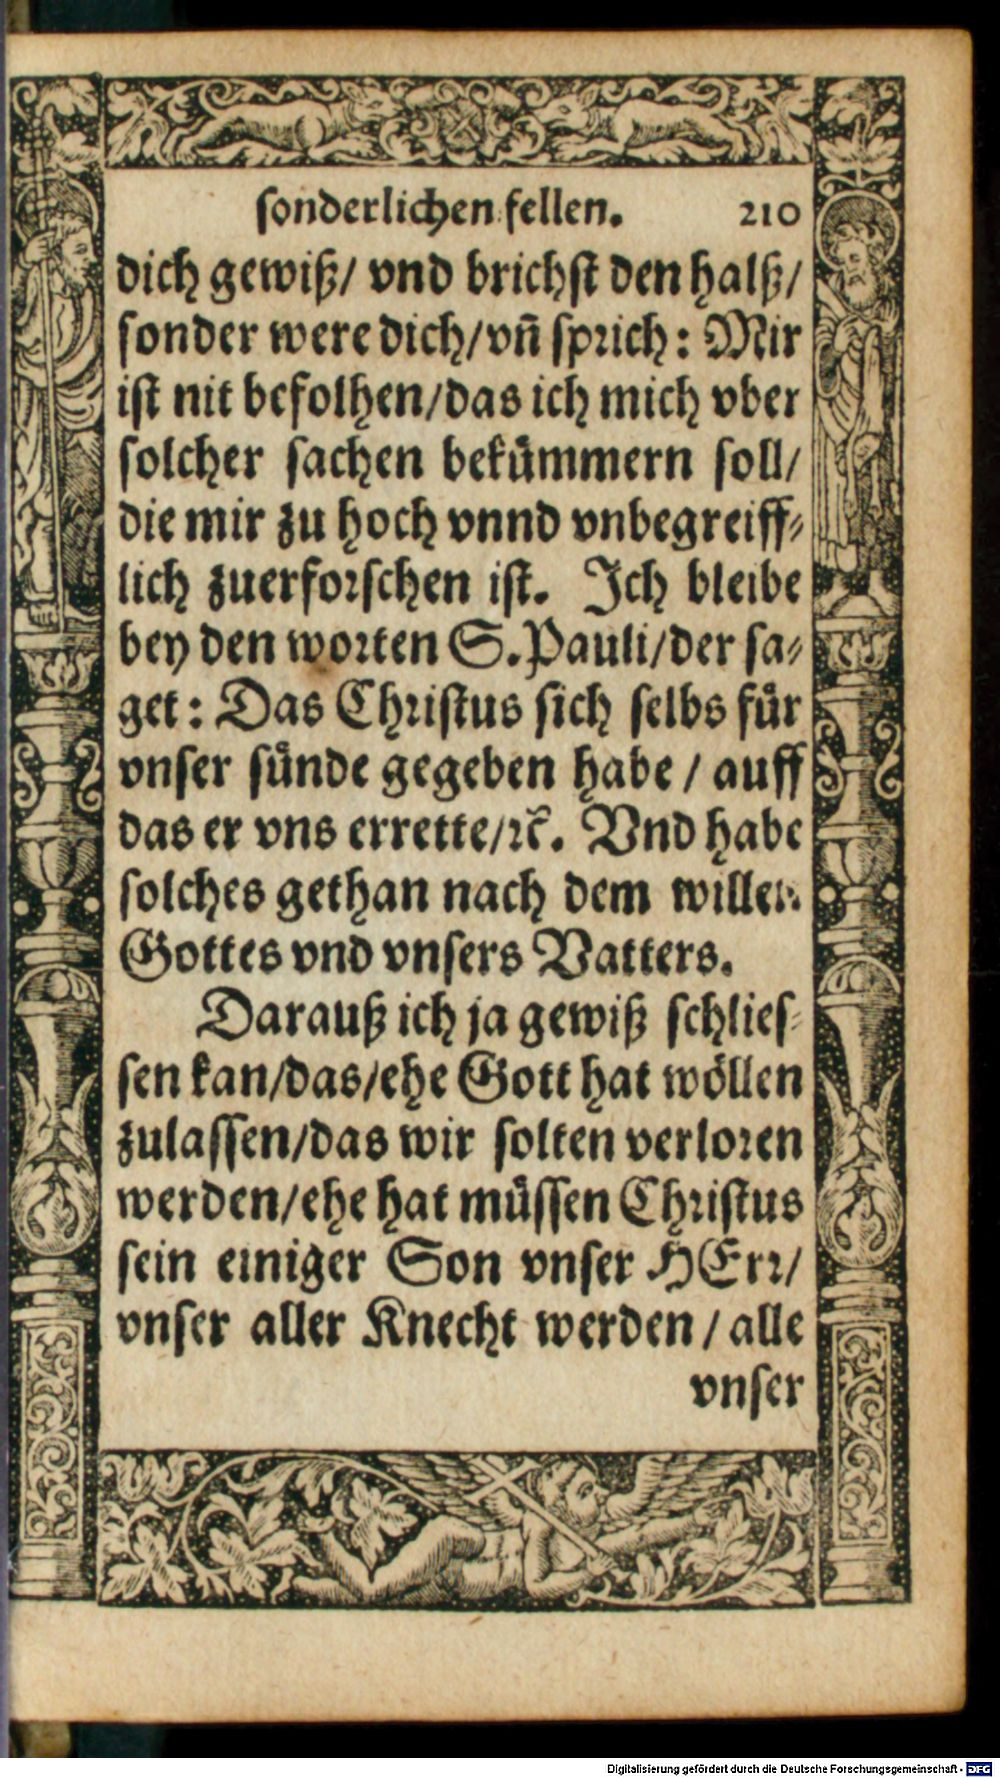 sonderlichen fellen. 210
dich gewiß/ vnd brichst den halß/
sonder were dich/vn̄ sprich: Mir
ist nit befolhen/das ich mich vber
solcher sachen bekuͤmmern soll/
die mir zu hoch vnnd vnbegreiff⸗
lich zuerforschen ist. Ich bleibe
bey den worten S. Pauli/der sa⸗
get: Das Christus sich selbs fuͤr
vnser suͤnde gegeben habe / auff
das er vns errette/ꝛc̄. Vnd habe
solches gethan nach dem willen
Gottes vnd vnsers Vatters.
Darauß ich ja gewiß schlies⸗
sen kan/das/ehe Gott hat woͤllen
zulassen/das wir solten verloren
werden/ehe hat muͤssen Christus
sein einiger Son vnser HErr/
vnser aller Knecht werden / alle
vnser
Digitalisierung gefördert durch die Deutsche Forschungsgemeinschaft - DFG